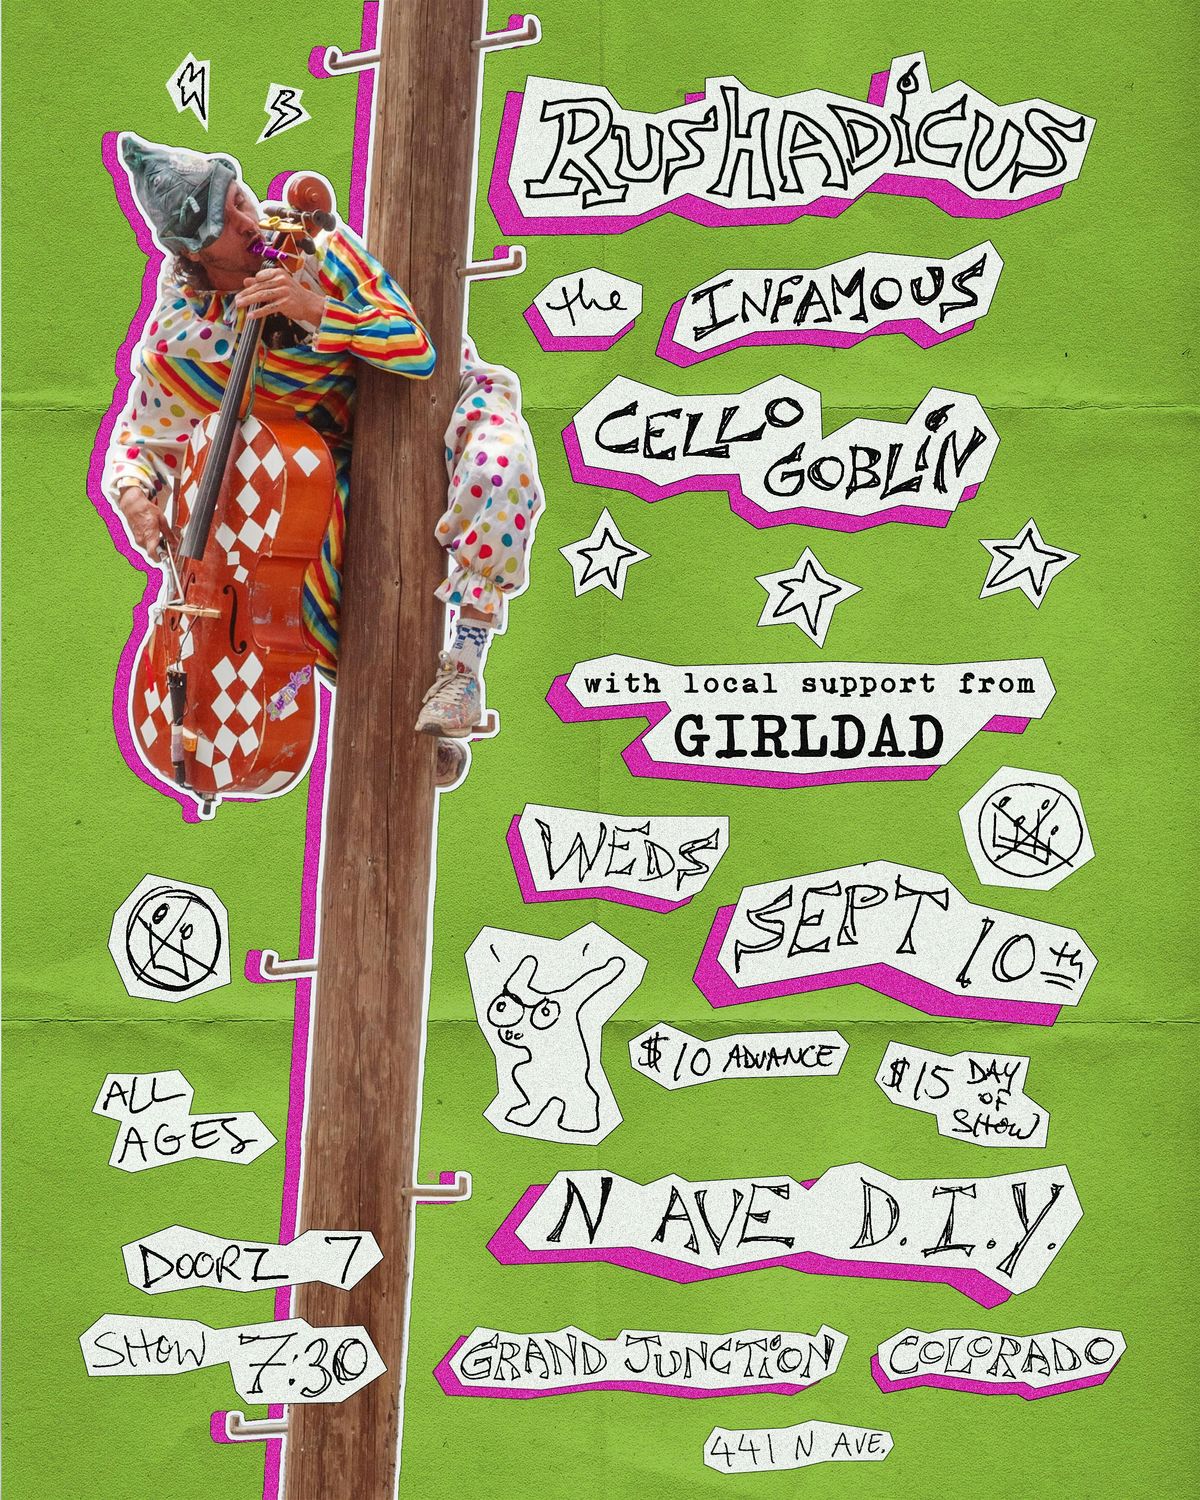 RUSHADiCUS
the INFAMOUS
CELLO
GOBLiN
with local support from
GIRLDAD
WEDS
SEPT 10th
$10 ADVANCE
$15 DAY
OF
SHOW
ALL
AGES
N AVE D.I.Y.
DOORZ 7
SHOW 7:30
GRAND JUNCTiON COLORADO
441 N AVE.